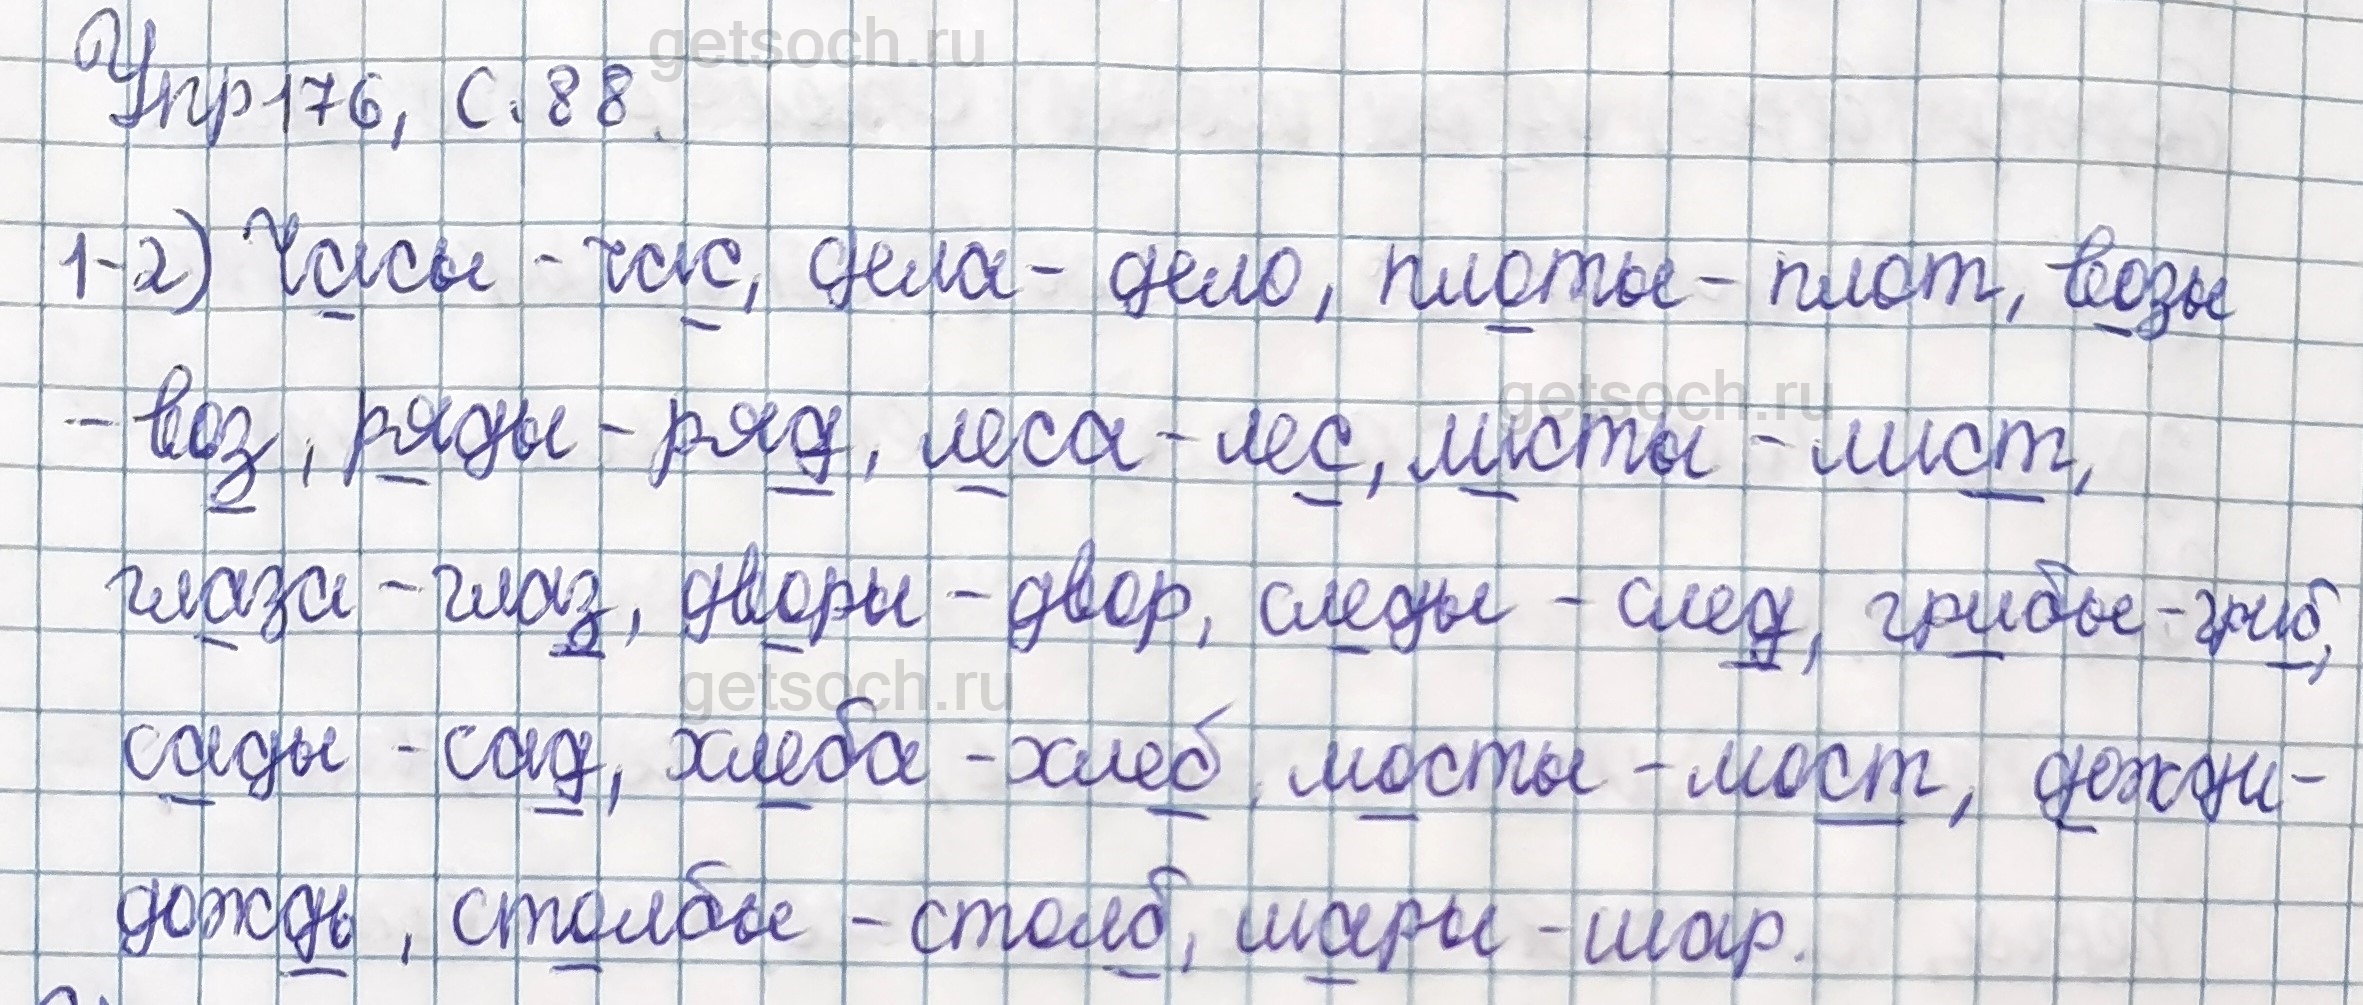 getsoch.ru
Упр 176, С. 88.
1-2) Часы - час, дела - дело, плоты - плот, возы
- воз, ряды - ряд, леса - лес, листы - лист,
getsoch.ru
глаза - глаз, дворы - двор, следы - след, грибы - гриб,
getsoch.ru
сады - сад, хлеба - хлеб, мосты - мост, дожди -
дождь, столбы - столб, шары - шар.